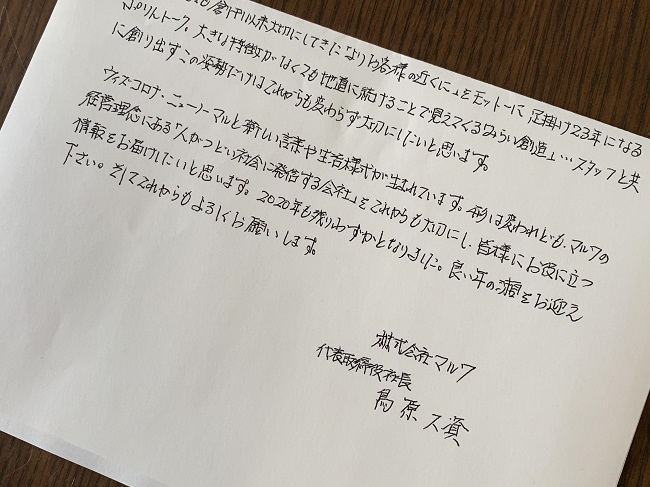 創刊以来大切にしてきた「よりお客様の近くに」をモットーに、足掛け23年になる
ぷりんトーク。大きな特徴がなくても地道に続けることで見えてくる「みらい創造」…スタッフと共
に創り出すこの姿勢だけはこれからも変わらず大切にしたいと思います。
ウィズコロナ、ニューノーマルと新しい言葉や生活様式が生まれています。形は変われども、マルワの
経営理念にある「人がつどい社会に発信する会社」をこれからも大切にし、皆様にお役に立つ
情報をお届けしたいと思います。2020年も残りわずかとなりました。良い年の瀬をお迎え
下さい。そしてこれからもよろしくお願いします。
株式会社マルワ
代表取締役社長
鳥原久資